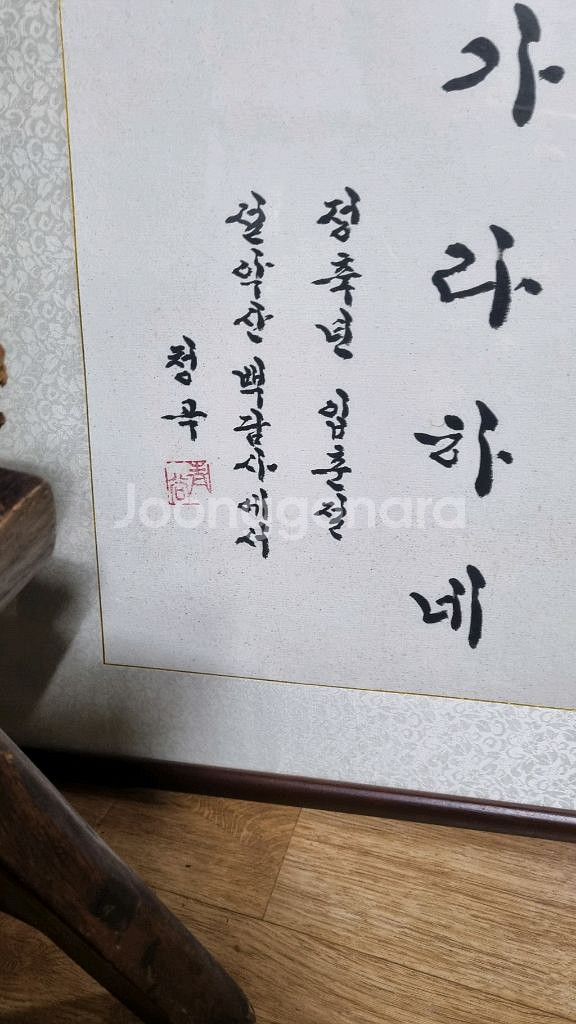 가라하네
정축년 입춘절
설악산 백담사에서
청곡
靑谷
Joonggonara